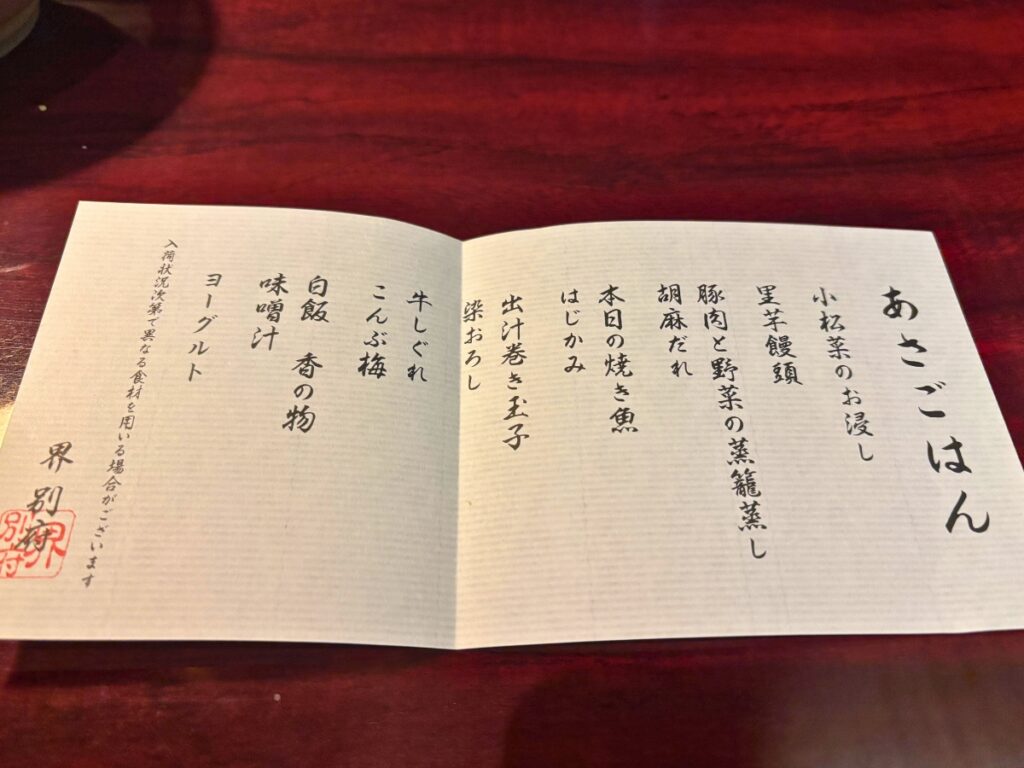 あさごはん
小松菜のお浸し
里芋饅頭
豚肉と野菜の蒸籠蒸し
胡麻だれ
本日の焼き魚
はじかみ
出汁巻き玉子
染おろし
牛しぐれ
こんぶ梅
白飯　香の物
味噌汁
ヨーグルト
入荷状況次第で異なる食材を用いる場合がございます
界 別府
界
別府